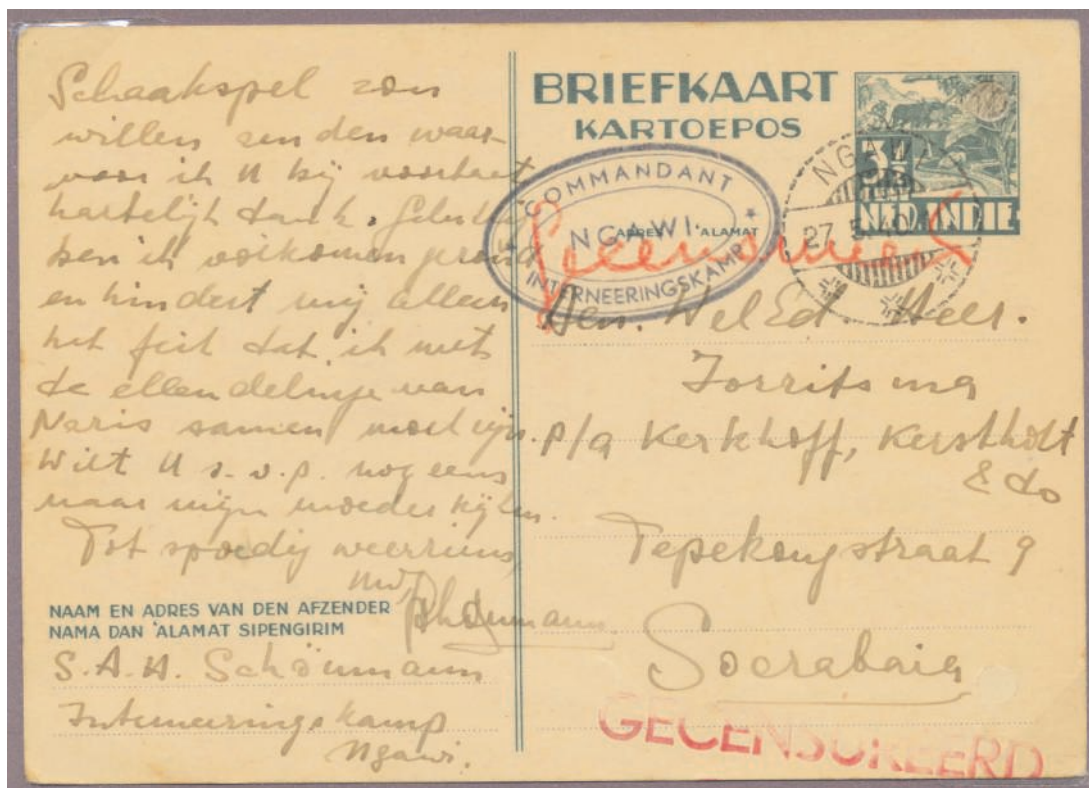 Schaakspel zou
willen zenden waar-
voor ik U bij voorbaat
hartelijk dank.
ben ik volkomen gezond
en hindert mij alleen
het feit dat ik met
de ellendeling van
Naris samen moet zijn.
Wilt U s.v.p. nog eens
naar mijn moeder kijken.
Tot spoedig weerziens,
NAAM EN ADRES VAN DEN AFZENDER
NAMA DAN 'ALAMAT SIPENGIRIM
S.A.H. Schöumann
Interneeringskamp
Ngawi.
BRIEFKAART
KARTOEPOS
3½
CENT
NED. INDIE
NGAWI
27.5.40
COMMANDANT
NGAWI
INTERNEERINGSKAMP
ADRES 'ALAMAT
Gecensureerd
Den. WelEd. Heer.
Jorritsma
p/a Kerkhoff, Kersthott
& do
Tepekongstraat 9
Soerabaia
GECENSUREERD